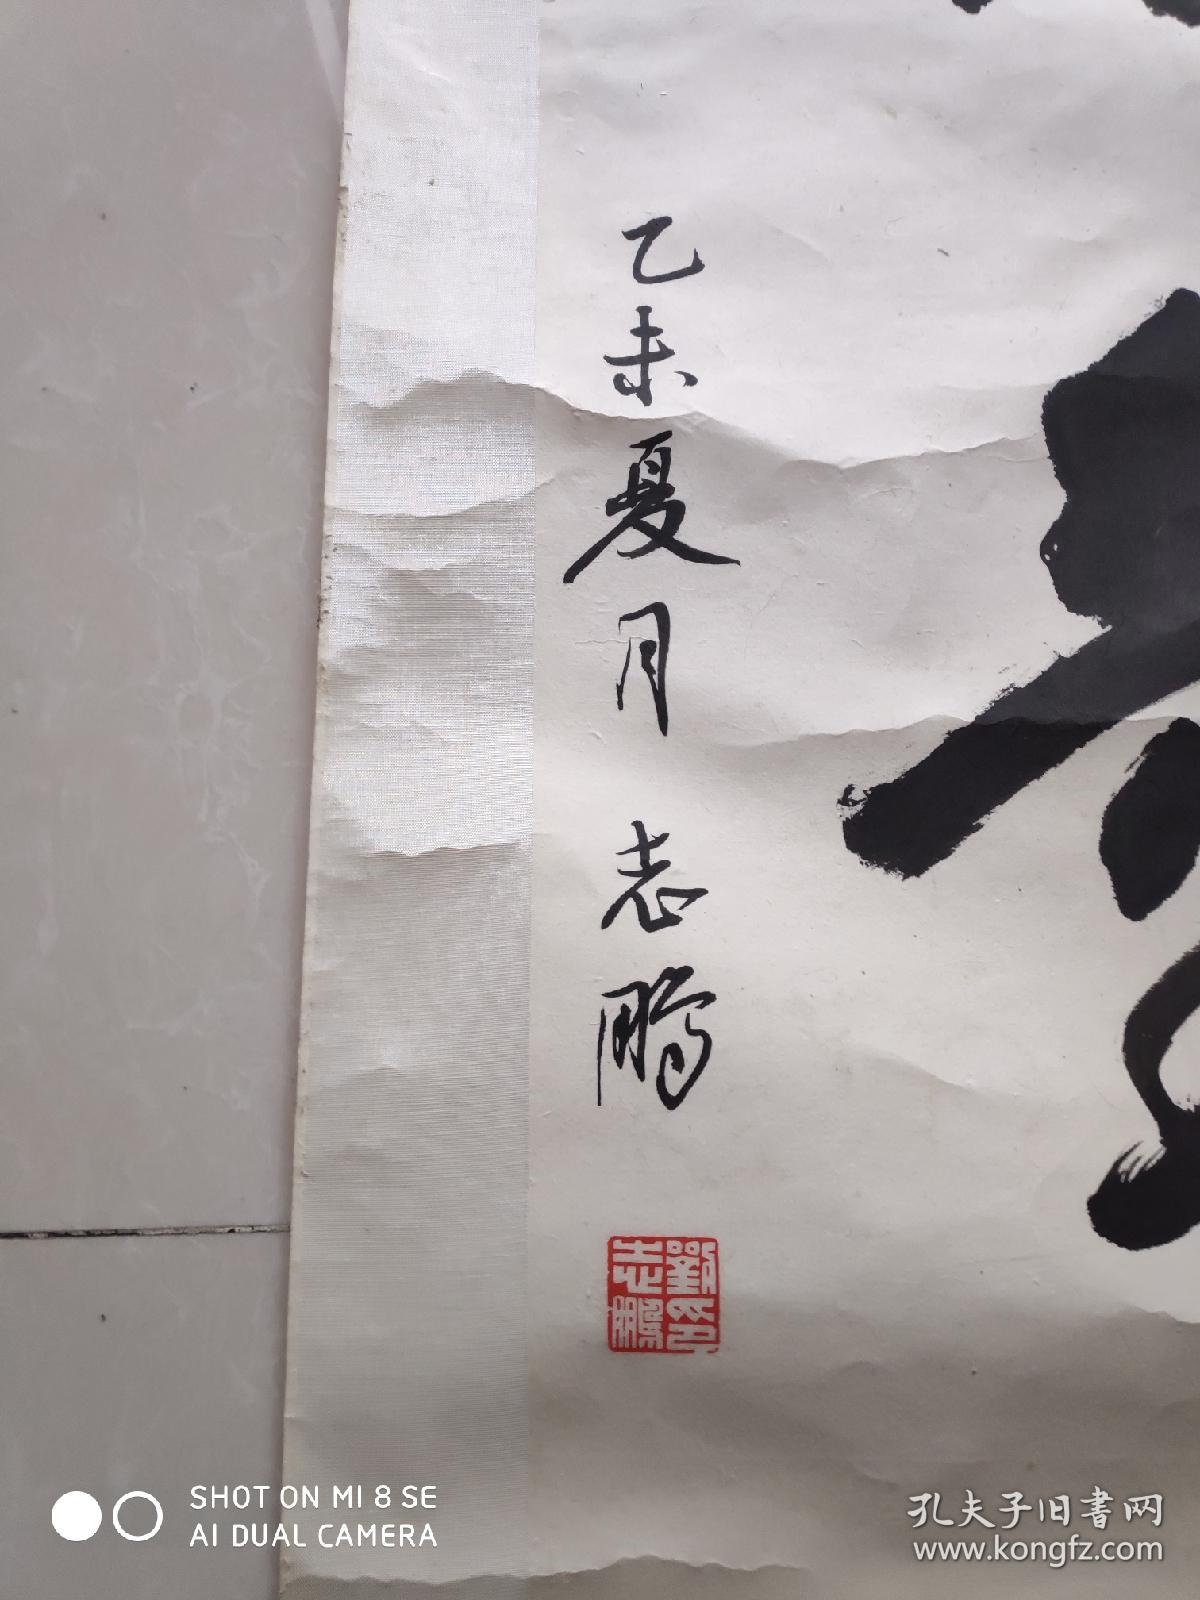 乙未夏月 志鵬
劉印
志鵬
SHOT ON MI 8 SE
AI DUAL CAMERA
孔夫子旧書网
www.kongfz.com